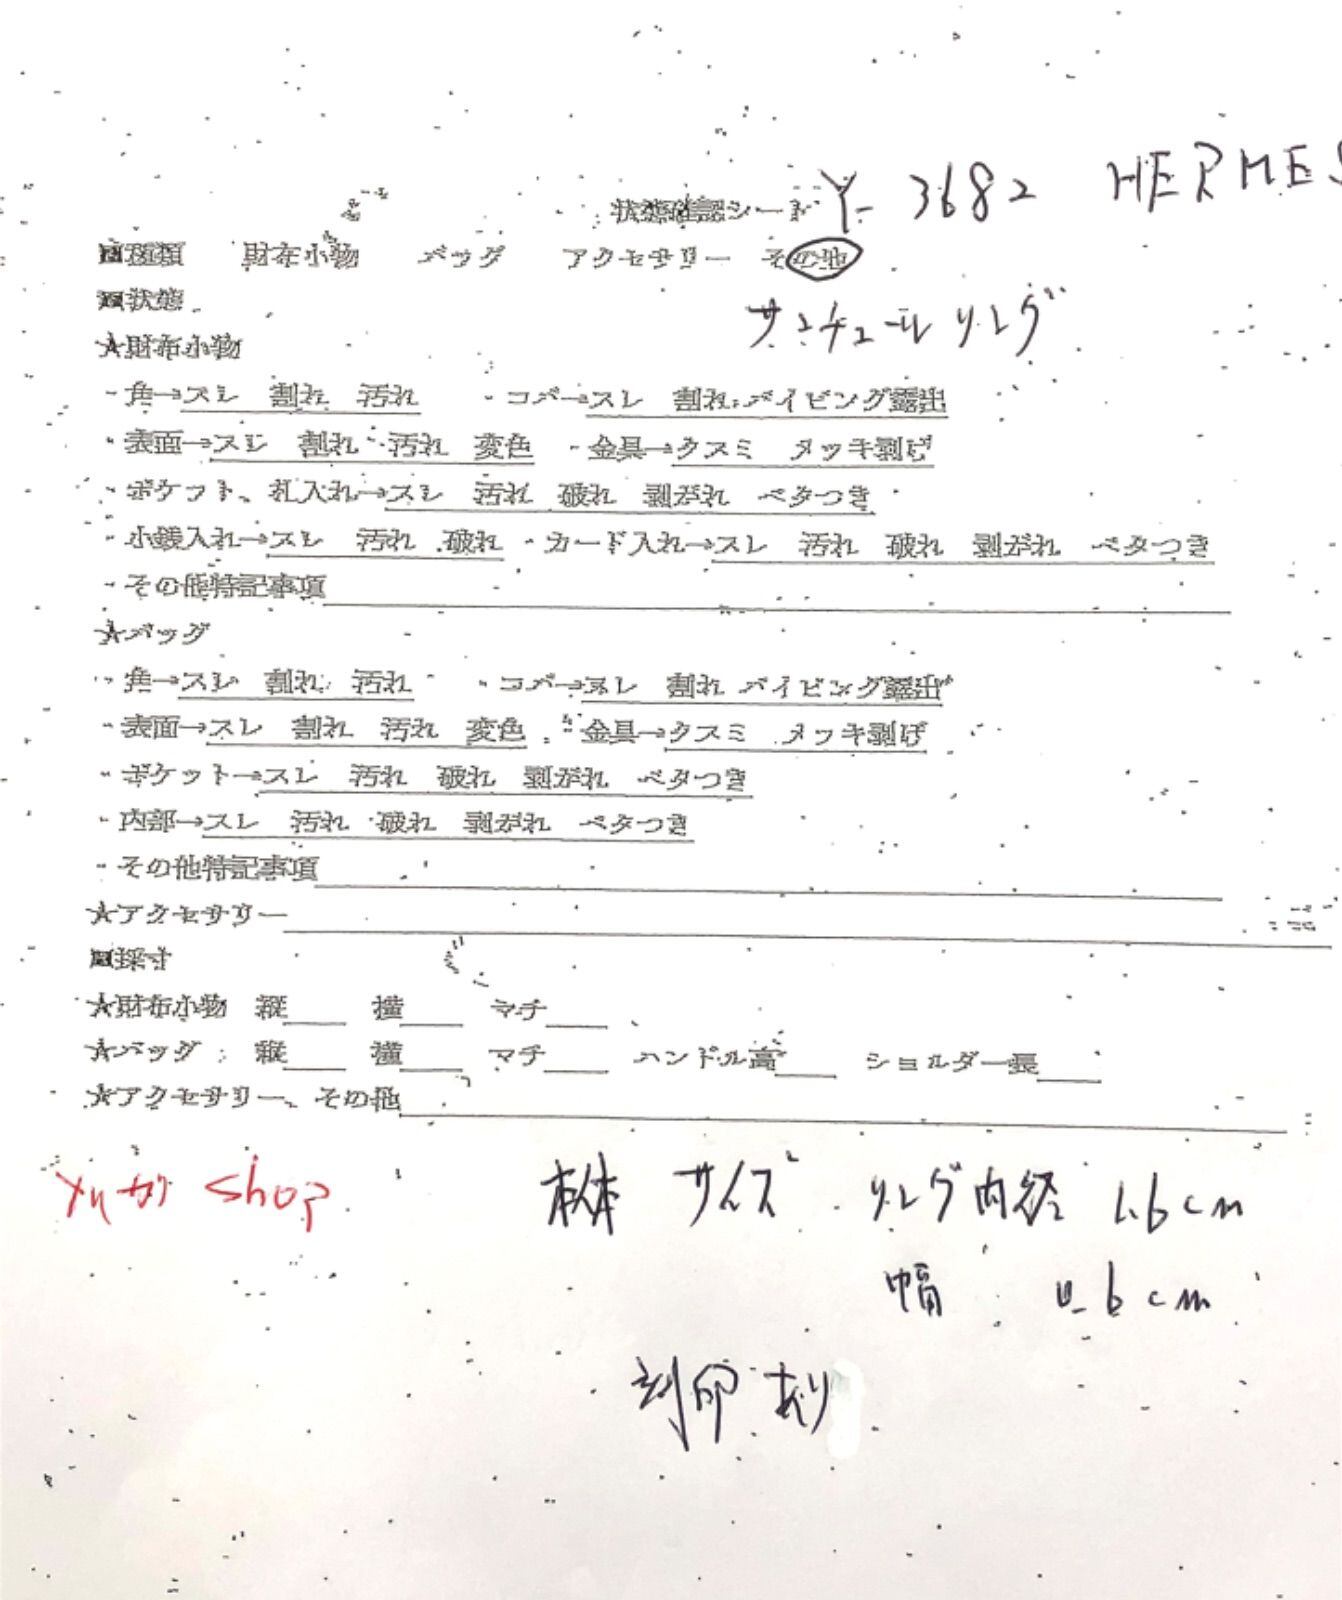 状態確認シート Y-3682 HERMES
■種類 財布小物 バッグ アクセサリー その他
■状態 サンチュールリング
★財布小物
・角→スレ 割れ 汚れ ・コバ→スレ 割れ パイピング露出
・表面→スレ 割れ 汚れ 変色 ・金具→クスミ メッキ剥げ
・ポケット、札入れ→スレ 汚れ 破れ 剥がれ ベタつき
・小銭入れ→スレ 汚れ 破れ ・カード入れ→スレ 汚れ 破れ 剥がれ ベタつき
・その他特記事項
★バッグ
・角→スレ 割れ 汚れ ・コバ→スレ 割れ パイピング露出
・表面→スレ 割れ 汚れ 変色 ・金具→クスミ メッキ剥げ
・ポケット→スレ 汚れ 破れ 剥がれ ベタつき
・内部→スレ 汚れ 破れ 剥がれ ベタつき
・その他特記事項
★アクセサリー
■採寸
★財布小物 縦 横 マチ
★バッグ 縦 横 マチ ハンドル高 ショルダー長
★アクセサリー、その他
メルカリ shop 本体 サイズ リング内径 1.6cm
幅 0.6cm
刻印 あり